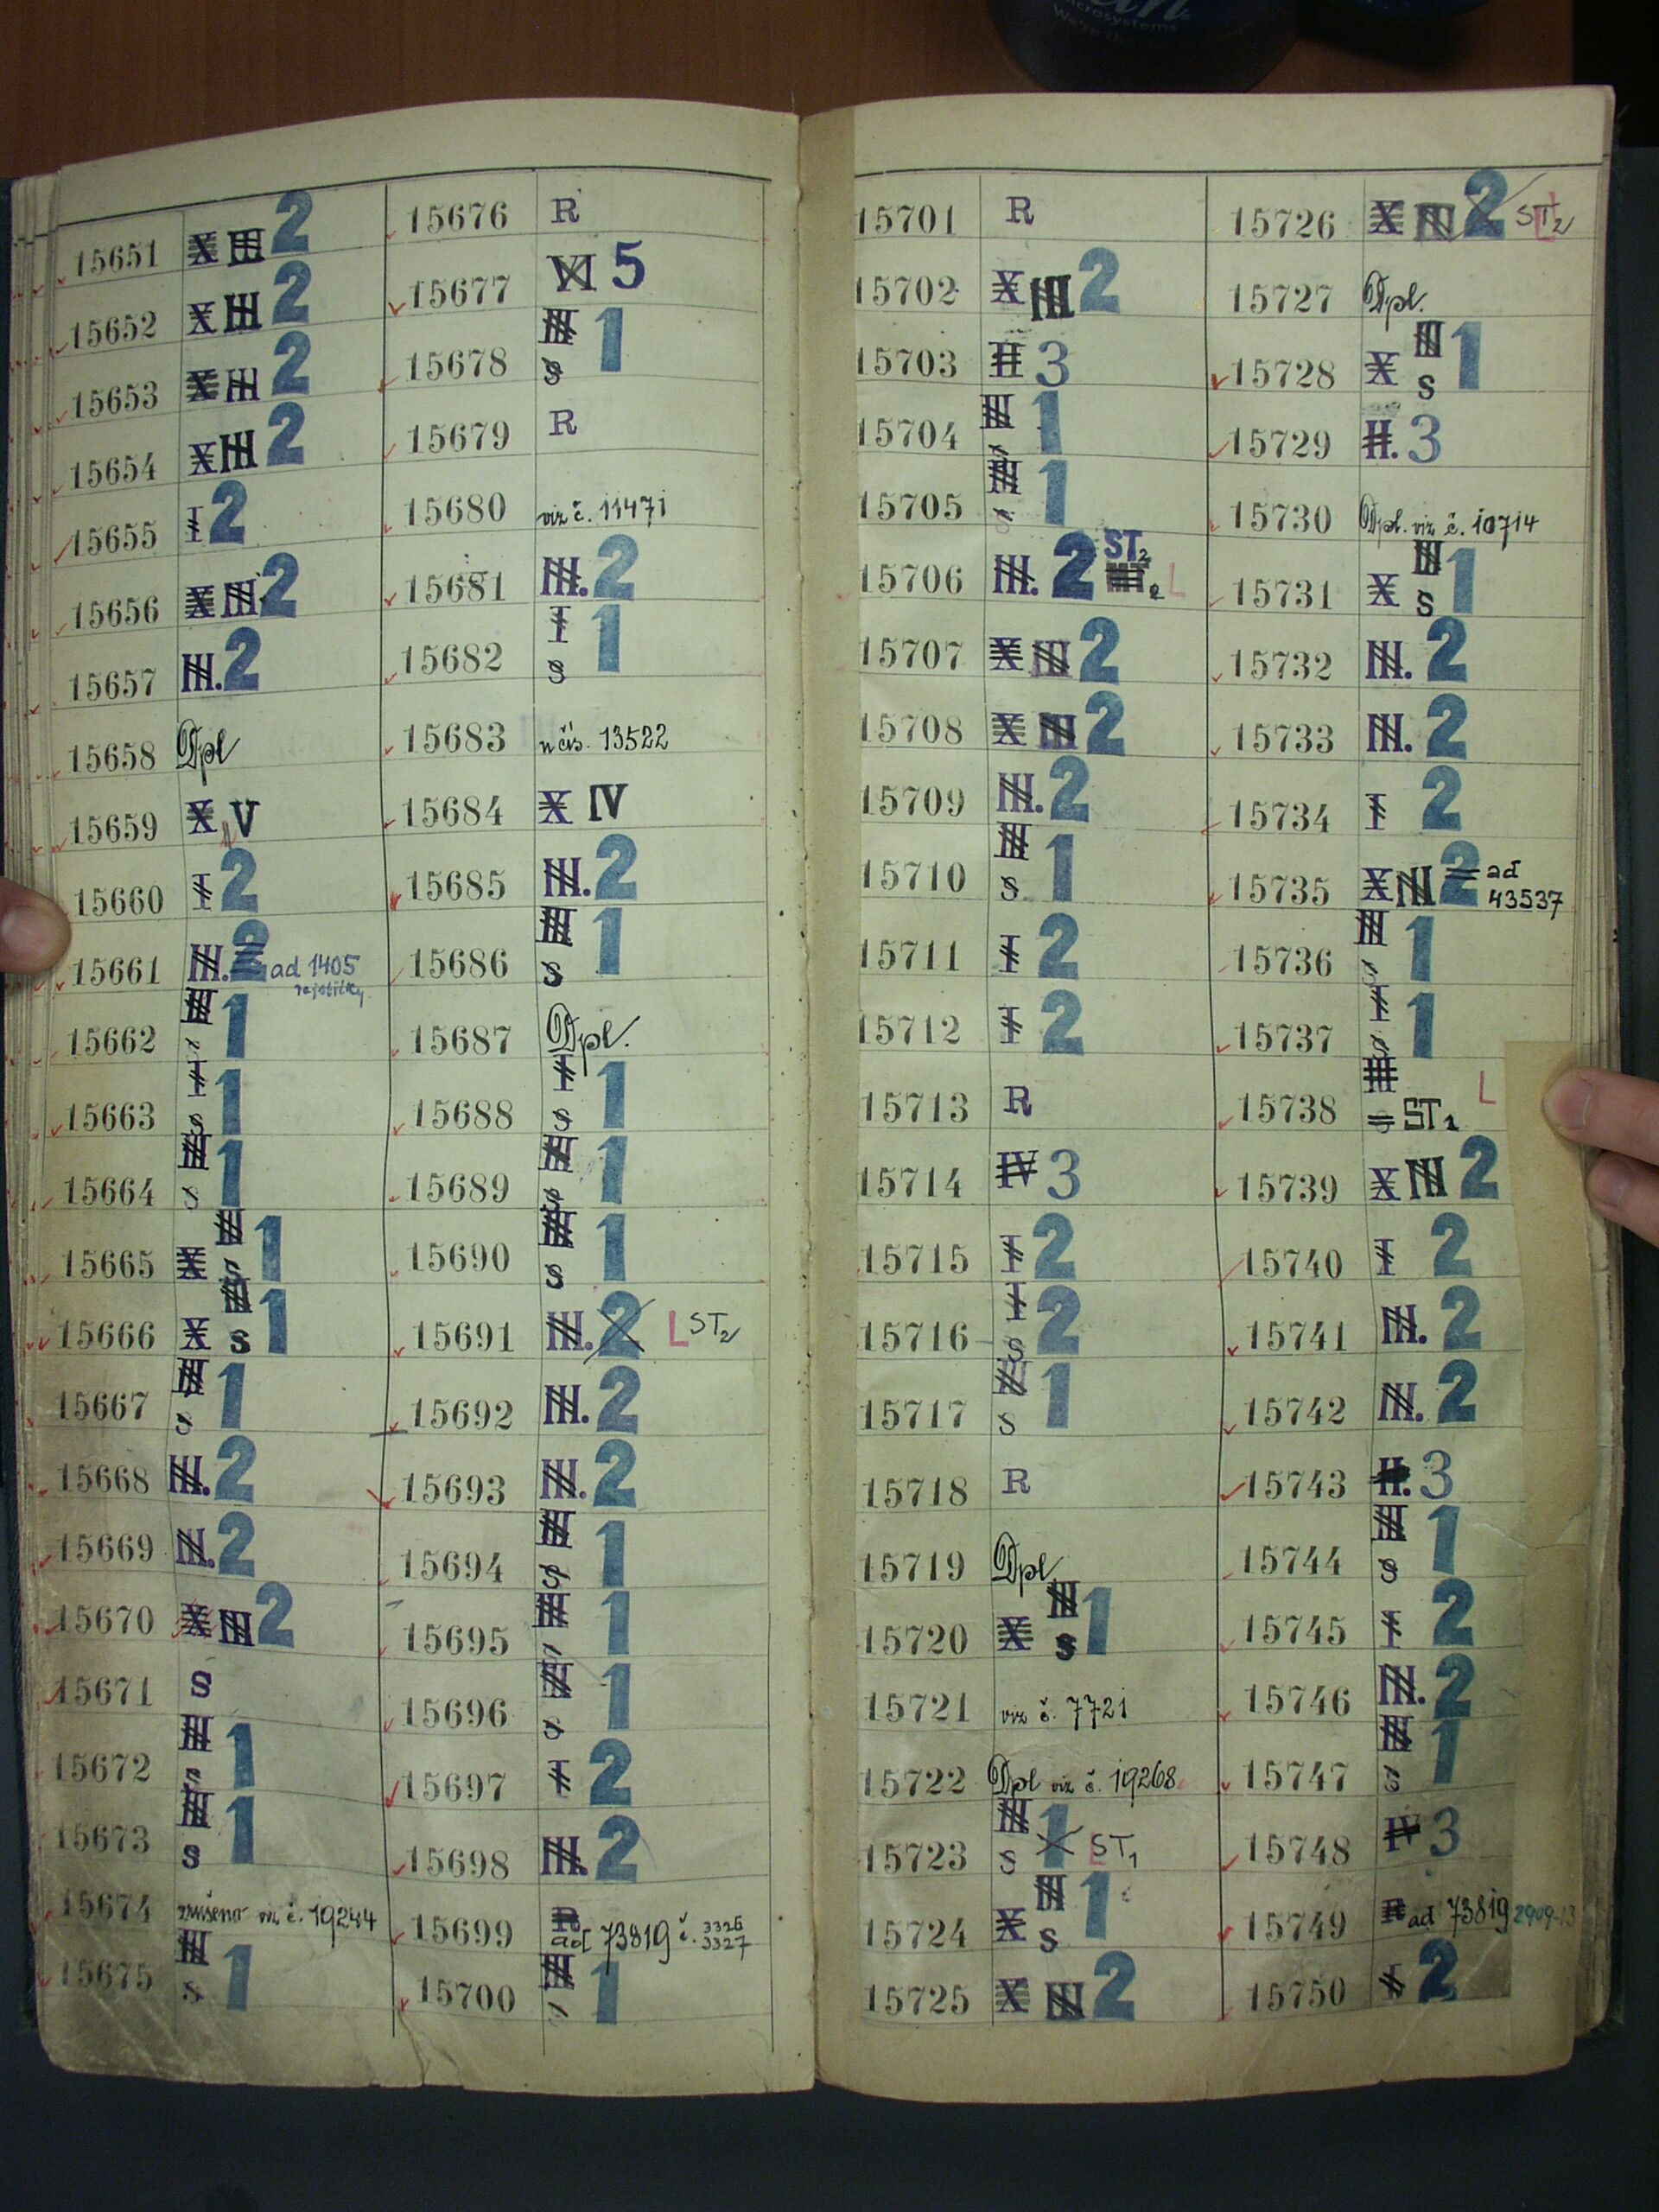 microsystems
15651 X III 2
15652 X III 2
15653 X III 2
15654 X III 2
15655 I 2
15656 X III. 2
15657 III. 2
15658 Dpl
15659 X V
15660 I 2
15661 III. 2 ad 1405
15662 III s 1
15663 I s 1
15664 III s 1
15665 X III s 1
15666 X III s 1
15667 III s 1
15668 III. 2
15669 III. 2
15670 X III 2
15671 S
15672 III s 1
15673 III s 1
15674 zrušeno viz č. 19244
15675 III s 1
15676 R
15677 VI 5
15678 III s 1
15679 R
15680 viz č. 11471
15681 III. 2
15682 I s 1
15683 u čís. 13522
15684 X IV
15685 III. 2
15686 III s 1
15687 Dpl.
15688 I s 1
15689 III s 1
15690 III s 1
15691 III. 2 L ST2
15692 III. 2
15693 III. 2
15694 III s 1
15695 III s 1
15696 III s 1
15697 I 2
15698 III. 2
15699 R ad 73819 č. 3326 3327
15700 III s 1
15701 R
15702 X III 2
15703 II 3
15704 III s 1
15705 III s 1
15706 III. 2 ST2 L
15707 X III 2
15708 X III 2
15709 III. 2
15710 III s 1
15711 I 2
15712 I 2
15713 R
15714 IV 3
15715 I 2
15716 I s 2
15717 III s 1
15718 R
15719 Dpl
15720 X III s 1
15721 viz č. 7721
15722 Dpl viz č. 19268
15723 III s 1 L ST1
15724 X III s 1
15725 X III 2
15726 X III 2 L ST2
15727 Dpl.
15728 X III s 1
15729 II. 3
15730 Dpl. viz č. 10714
15731 X III s 1
15732 III. 2
15733 III. 2
15734 I 2
15735 X III 2 ad 43537
15736 III s 1
15737 I s 1
15738 III s ST1 L
15739 X III 2
15740 I 2
15741 III. 2
15742 III. 2
15743 II. 3
15744 III s 1
15745 I 2
15746 III. 2
15747 III s 1
15748 IV 3
15749 R ad 73819 2909-13
15750 I 2